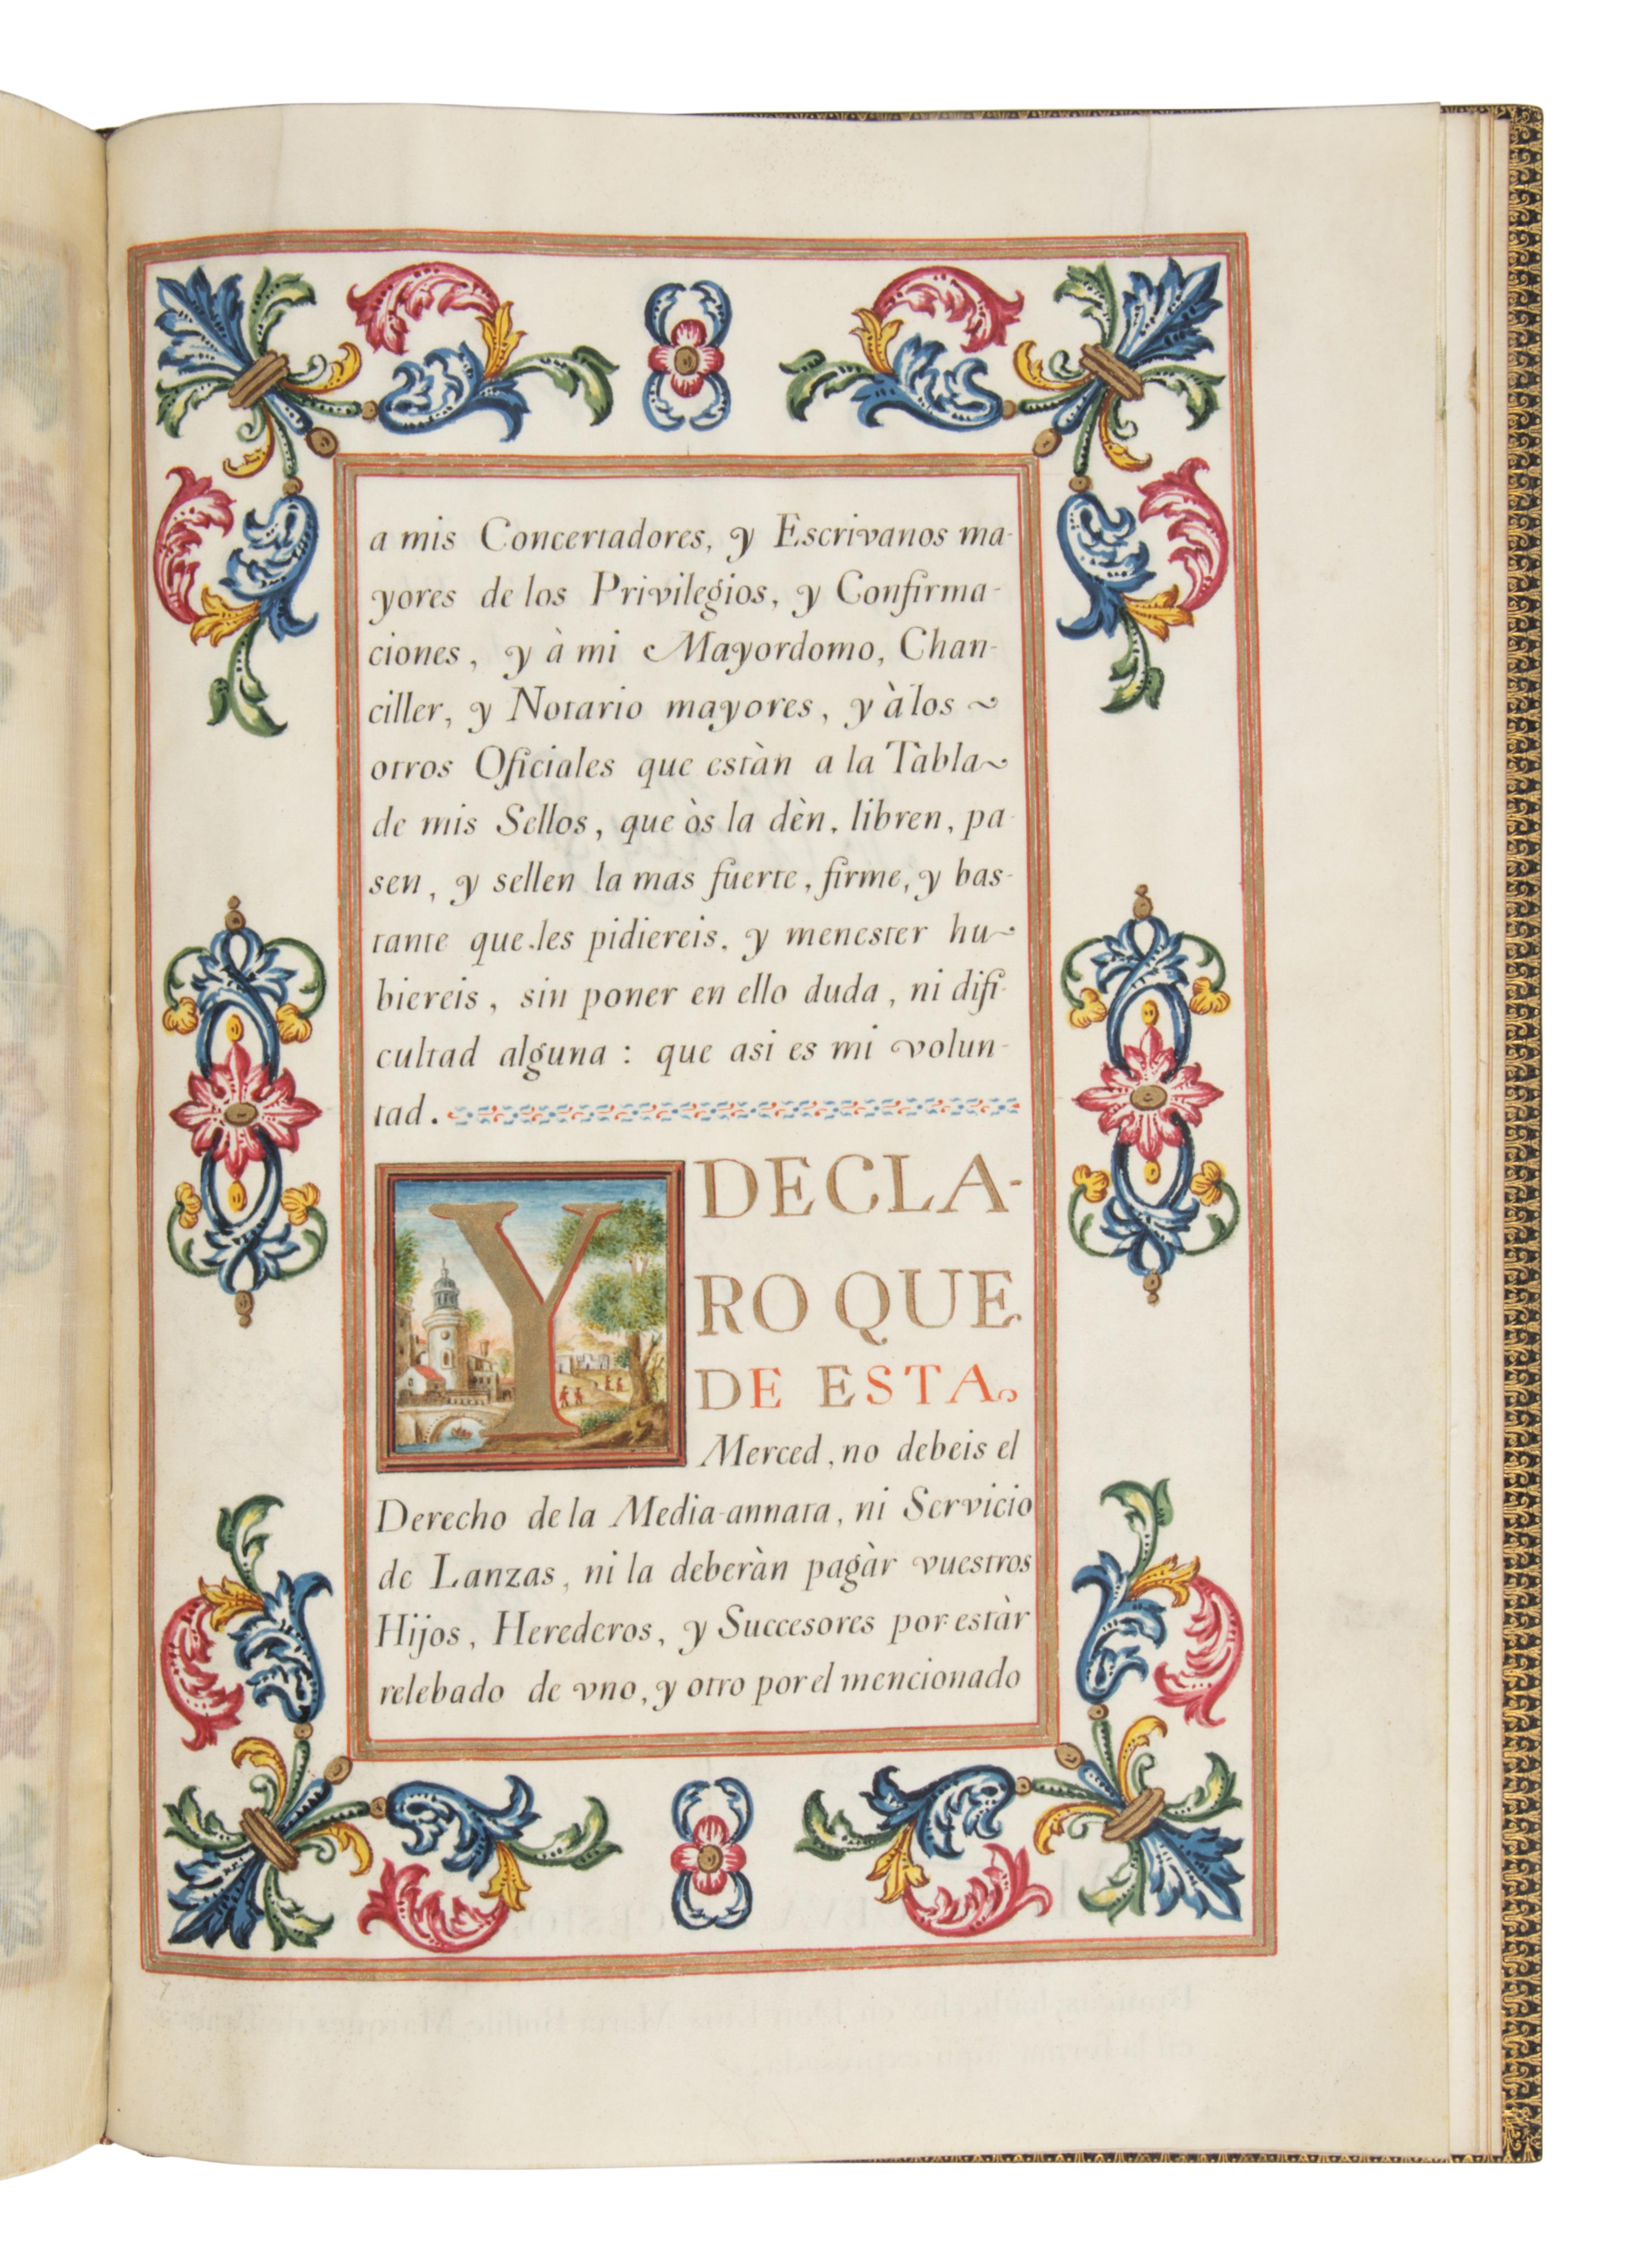 a mis Concertadores, y Escrivanos ma-
yores de los Privilegios, y Confirma-
ciones, y à mi Mayordomo, Chan-
ciller, y Notario mayores, y à los ~
otros Oficiales que estàn a la Tabla~
de mis Sellos, que òs la dèn, libren, pa-
sen, y sellen la mas fuerte, firme, y bas-
tante que les pidiereis, y menester hu~
biereis, sin poner en ello duda, ni difi-
cultad alguna : que asi es mi volun-
tad.
Y DECLA-
RO QUE
DE ESTA
Merced, no debeis el
Derecho de la Media-annata, ni Servicio
de Lanzas, ni la deberàn pagàr vuestros
Hijos, Herederos, y Succesores por estàr
relebado de vno, y otro por el mencionado